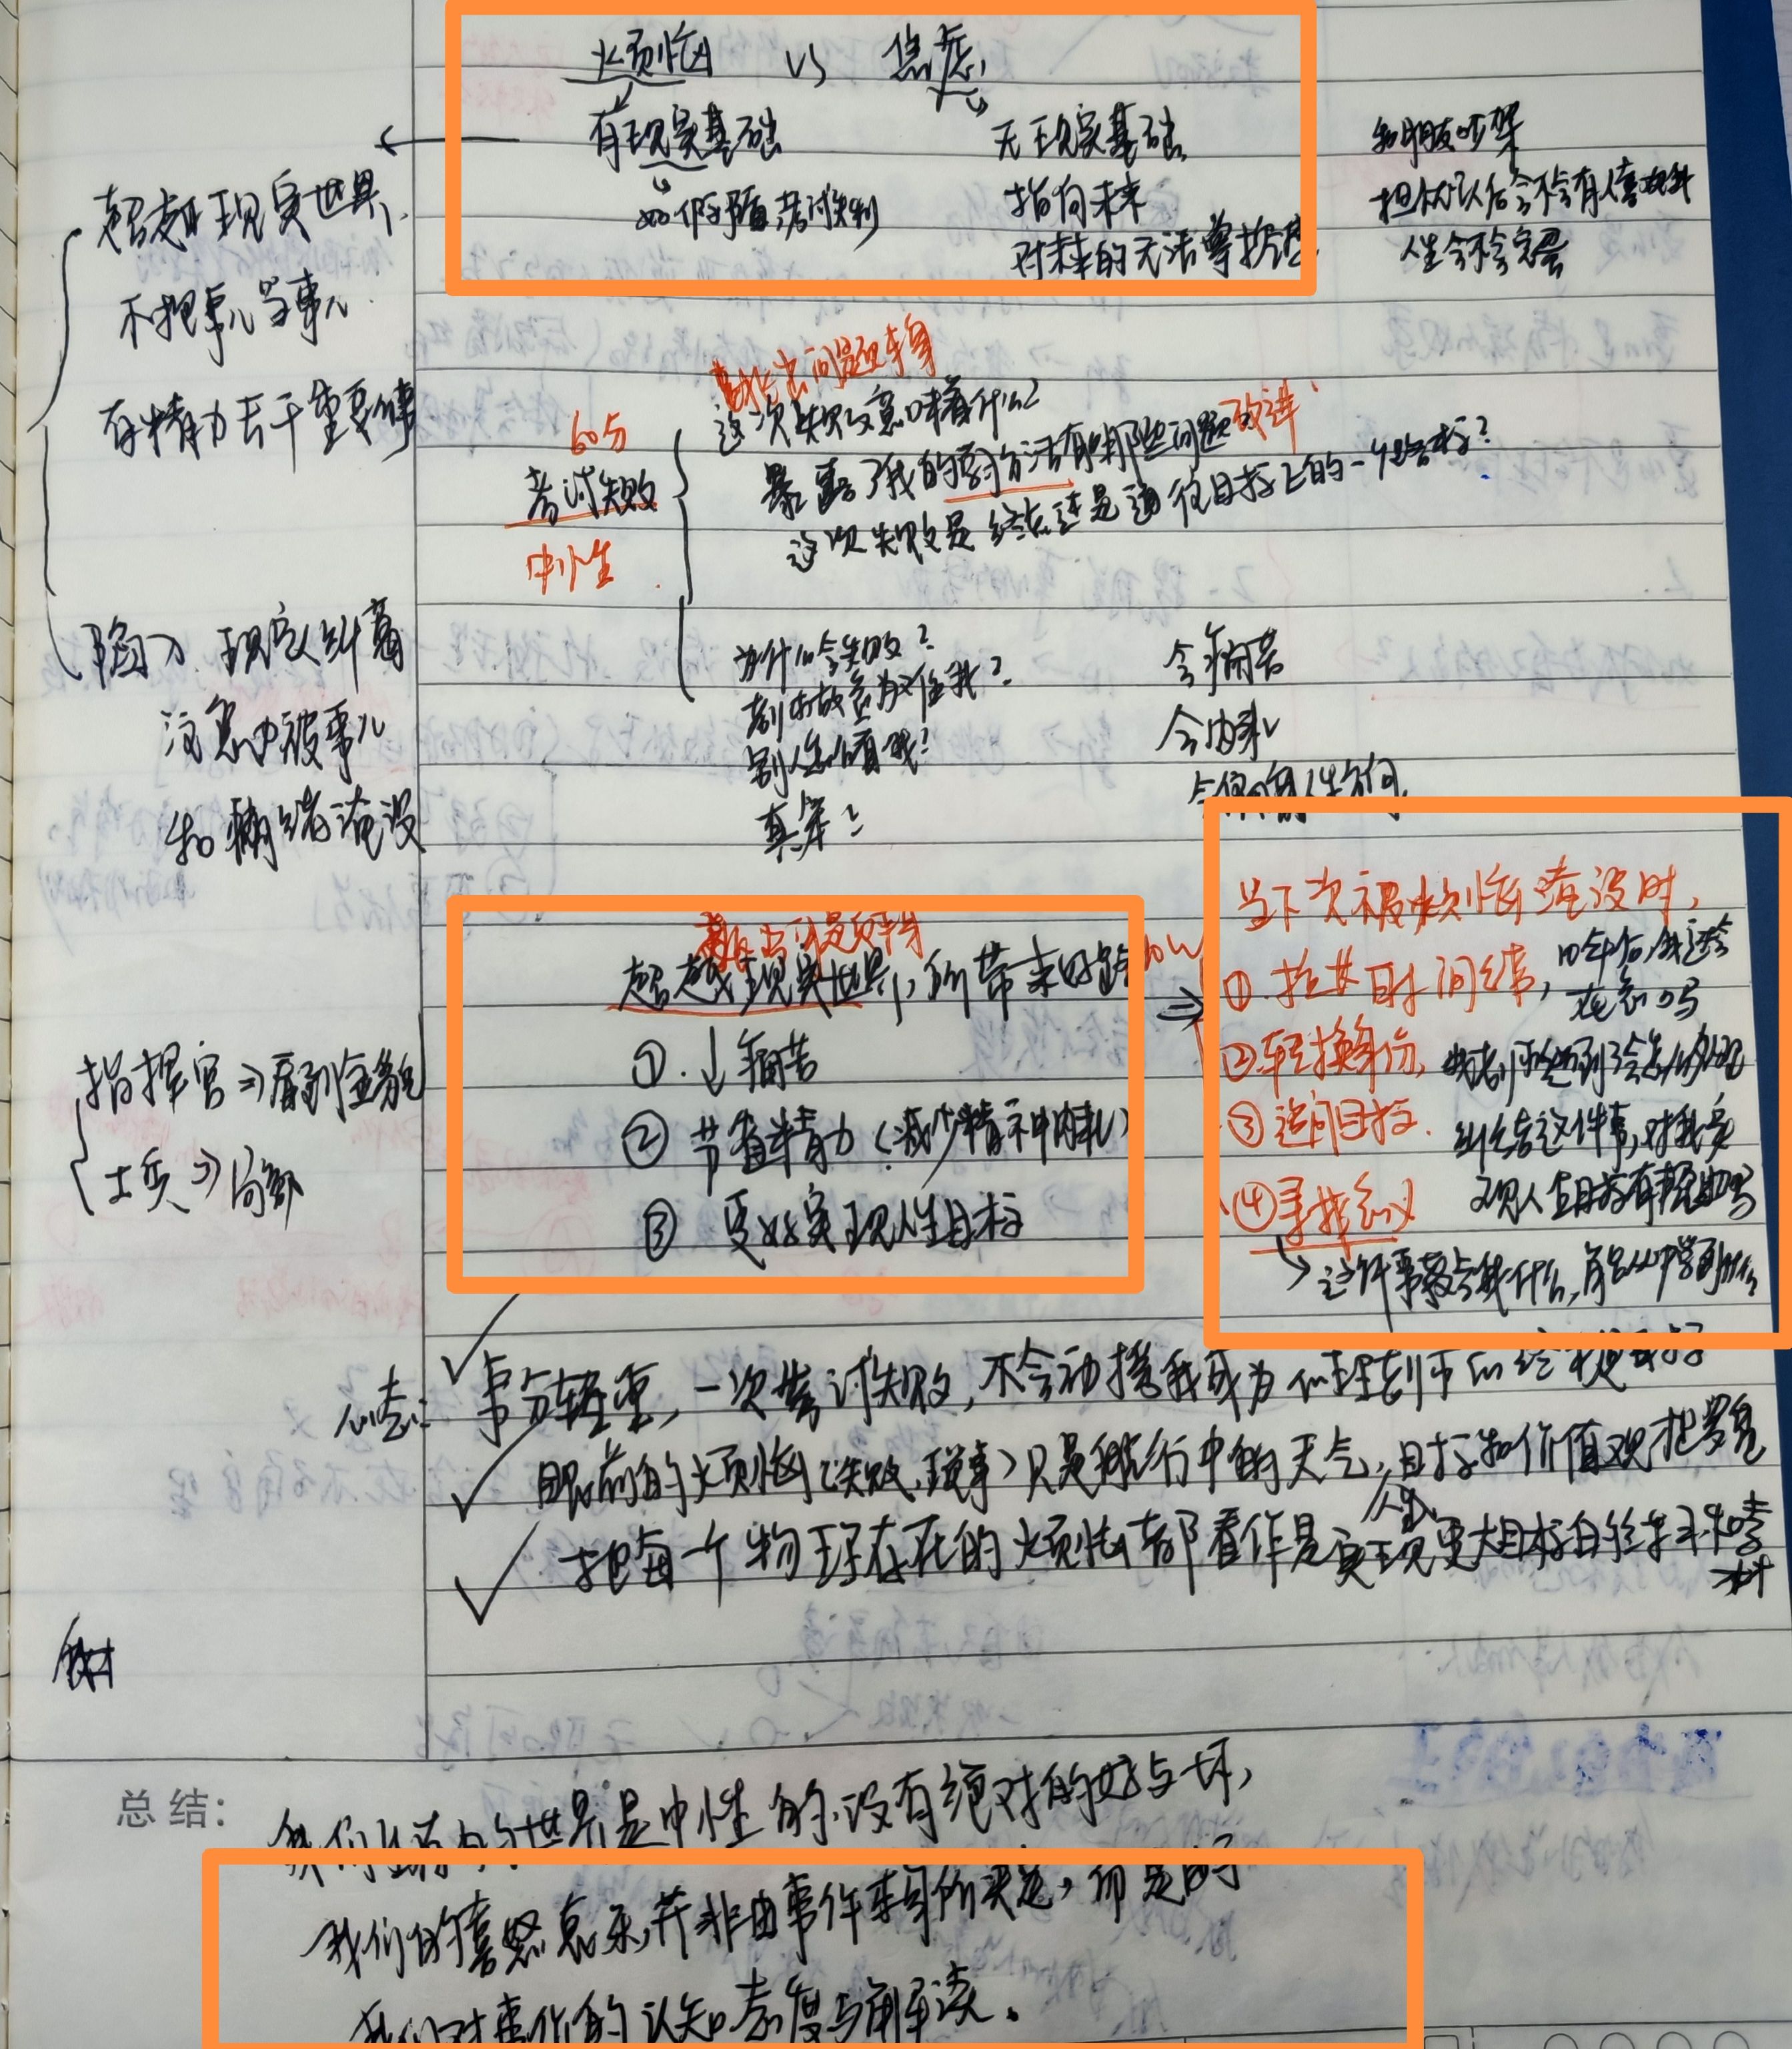 烦恼 vs 焦虑
有现实基础 无现实基础
如何 考试失利 指向未来
对未来的无法掌控
和朋友吵架
担忧以后会不会有人喜欢我
人生会不会完蛋
超越现实世界
不把事儿当事儿
有精力去干重要的事
陷入现实纠葛
注意力被事儿
和情绪淹没
指挥官⇒看到全貌
士兵⇒局部
60分
考试失败
中性
跳出问题本身
这次失败意味着什么?
暴露了我的学习方法有哪些问题 改进
这次失败是终点还是通往目标上的一个路标?
为什么会失败?
老师故意为难我?
别人怎么看我?
真笨?
会痛苦
会内耗
跳出问题本身
超越现实世界,所带来的
① ↓痛苦
② 节省精力(减少精神内耗)
③ 更好实现人生目标
⇒
当下次被烦恼淹没时,
① 拉长时间线, 10年后,我还会
在意吗
② 转换身份,
③ 追问目标. 纠结这件事,对我实
现人生目标有帮助吗
④ 寻找意义
这件事教会我什么,有没从中学到什么
心态: 事分轻重,一次考试失败,不会动摇我成为心理老师的终极目标
眼前的烦恼(失败,琐事)只是航行中的天气,目标和价值观才是
人生
把每一个物理存在的烦恼都看作是实现更大目标的
总结:
我们生存的世界是中性的,没有绝对的好与坏,
我们的喜怒哀乐,并非由事件本身所决定,而是由于
我们对事件的认知态度与解读。